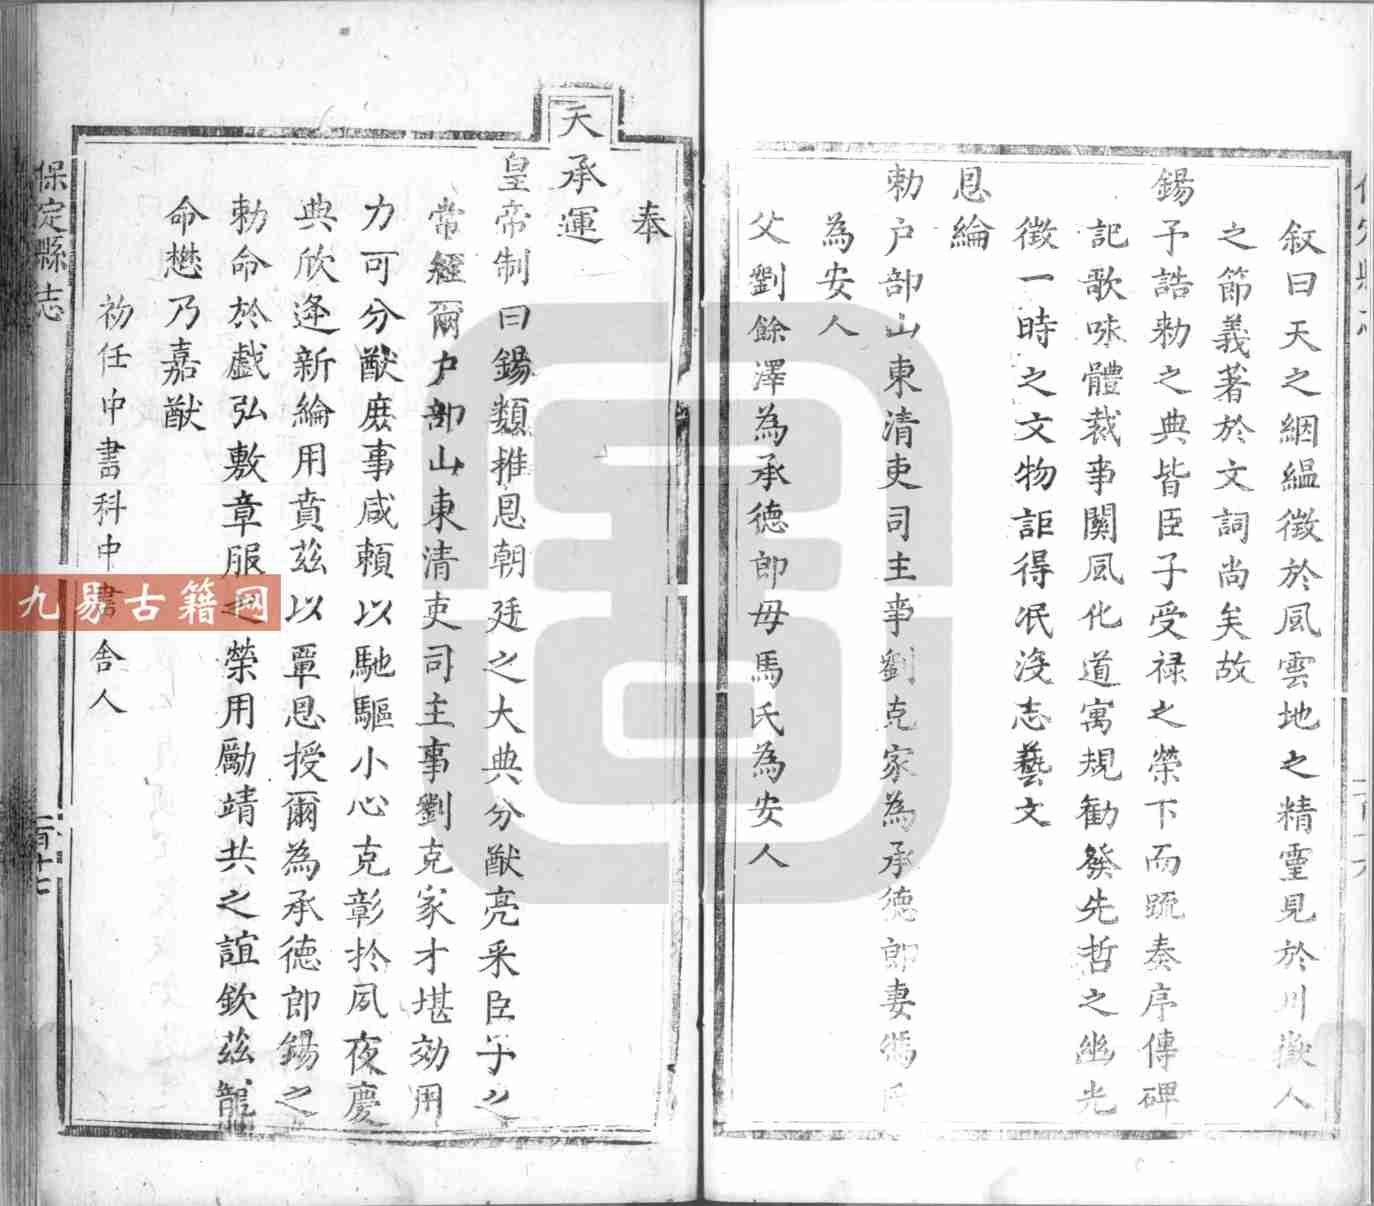 叙曰天之絪緼徵於風雲地之精靈見於川嶽人
之節義著於文詞尚矣故
錫予誥勅之典皆臣子受禄之榮下而䟽奏序傳碑
記歌咏體裁事關風化道寓規勸發先哲之幽光
徵一時之文物詎得泯沒志藝文
恩綸
勅户部山東清吏司主事劉克家為承德郎妻馮氏
為安人
父劉餘澤為承德郎母馬氏為安人
奉
天承運
皇帝制曰錫類推恩朝廷之大典分猷亮采臣子之
常經爾户部山東清吏司主事劉克家才堪効用
力可分猷庶事咸賴以馳驅小心克彰扵夙夜慶
典欣逢新綸用賁兹以覃恩授爾為承德郎錫之
勅命於戱弘敷章服之榮用勵靖共之誼欽兹龍
命懋乃嘉猷
初任中書科中書舍人
保定縣志
二百十七
九易古籍网